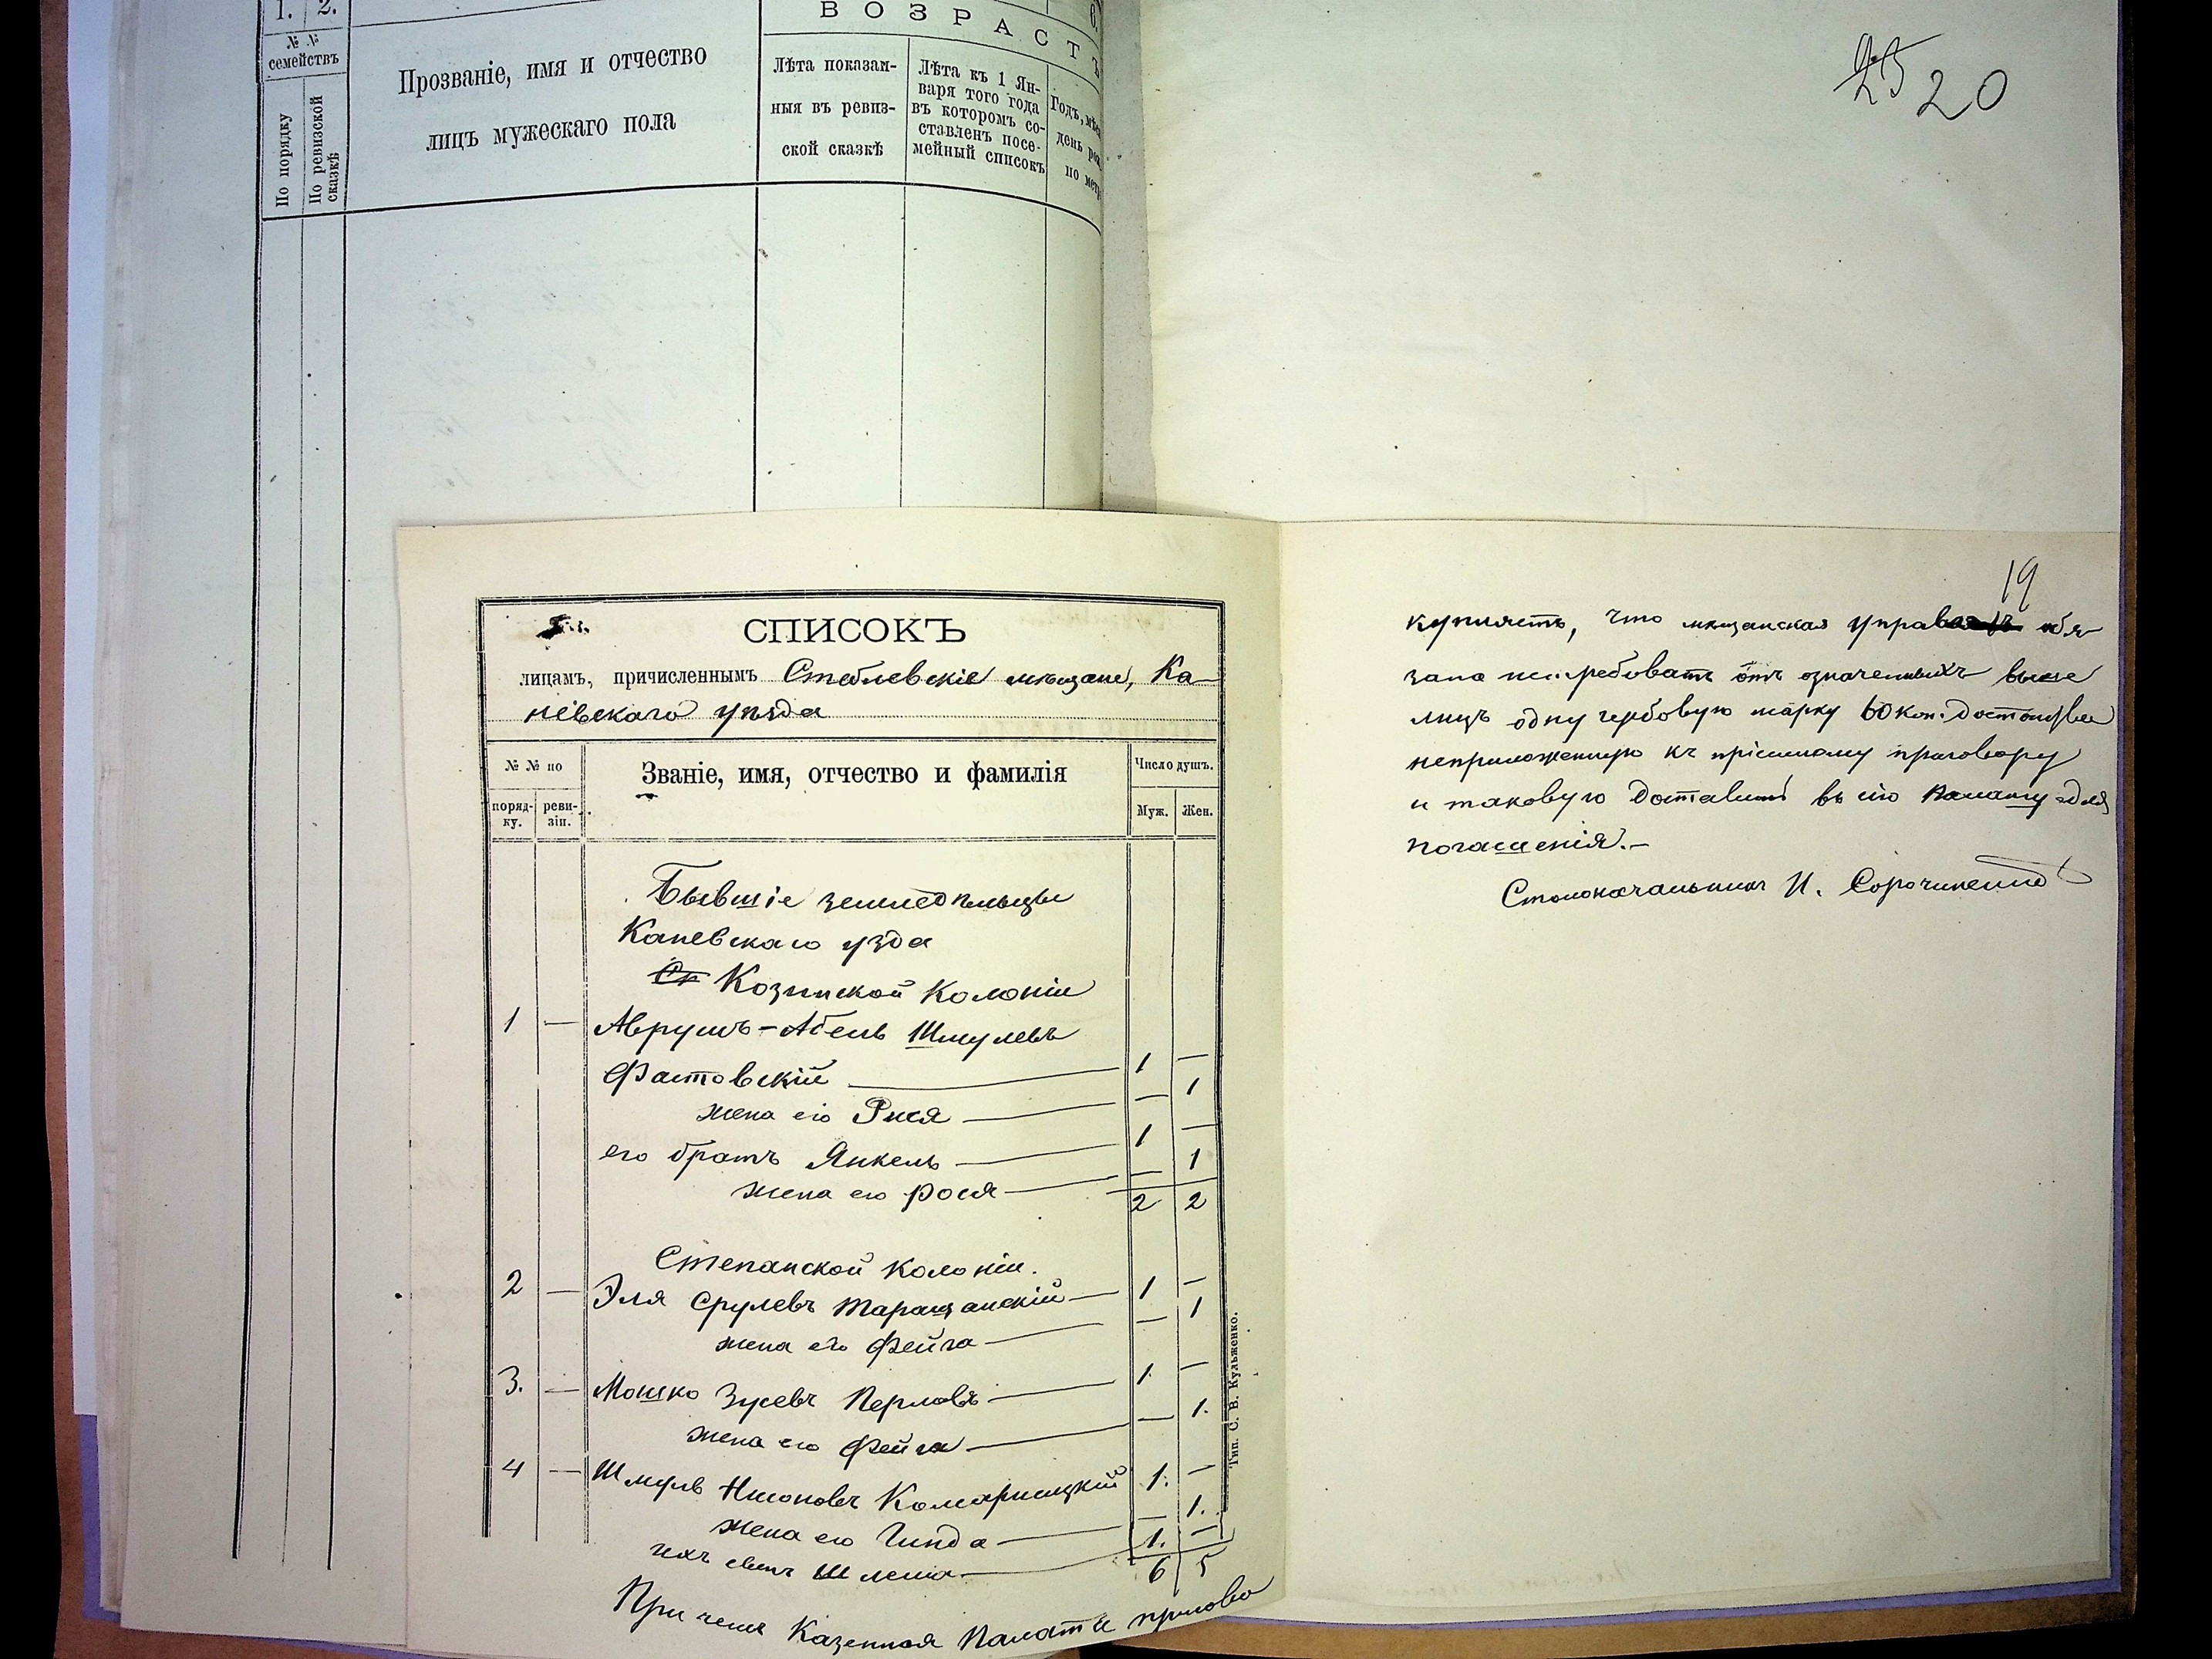 1. 2.
№ №
семействъ
По порядку
По ревизской
сказкѣ
Прозваніе, имя и отчество
лицъ мужескаго пола
ВОЗРАСТЪ
Лѣта показан-
ныя въ ревиз-
ской сказкѣ
Лѣта къ 1 Ян-
варя того года
въ которомъ со-
ставленъ посе-
мейный списокъ
Годъ, мѣс
день рож
по мет
6.
25 20
СПИСОКЪ
лицамъ, причисленнымъ Стеблевскіе мѣщане, Ка-
невскаго уѣзда
№ № по
поряд-
ку.
реви-
зіи.
Званіе, имя, отчество и фамилія
Число душъ.
Муж. Жен.
Бывшіе земледѣльцы
Каневскаго уѣзда
Ст Козинской Колоніи
1 — Аврумъ-Абель Шмулевъ
Фастовскій — 1 —
жена его Рися — — 1
его братъ Янкель — 1 —
жена его Рося — — 1
2 2
Степанской Колоніи.
2 — Эля Срулевъ Таращанскій — 1 —
жена его Фейга — — 1
3. — Мошко Зусевъ Перловъ — 1. —
жена его Фейга — — 1.
4 — Шмуль Нисоновъ Комарницкій 1. —
жена его Гинда — — 1.
ихъ сынъ Шлема — 1. —
6 5
При чемъ Казенная Палата присово
Тип. С. В. Кульженко.
19
купляетъ, что мѣщанская управа обя-
зана истребовать отъ означенныхъ выше
лицъ одну гербовую марку 60 коп. достоинства
неприложенную къ пріемному приговору
и таковую доставить въ сію Палату для
погашенія.—
Столоначальникъ И. Сорочинскій